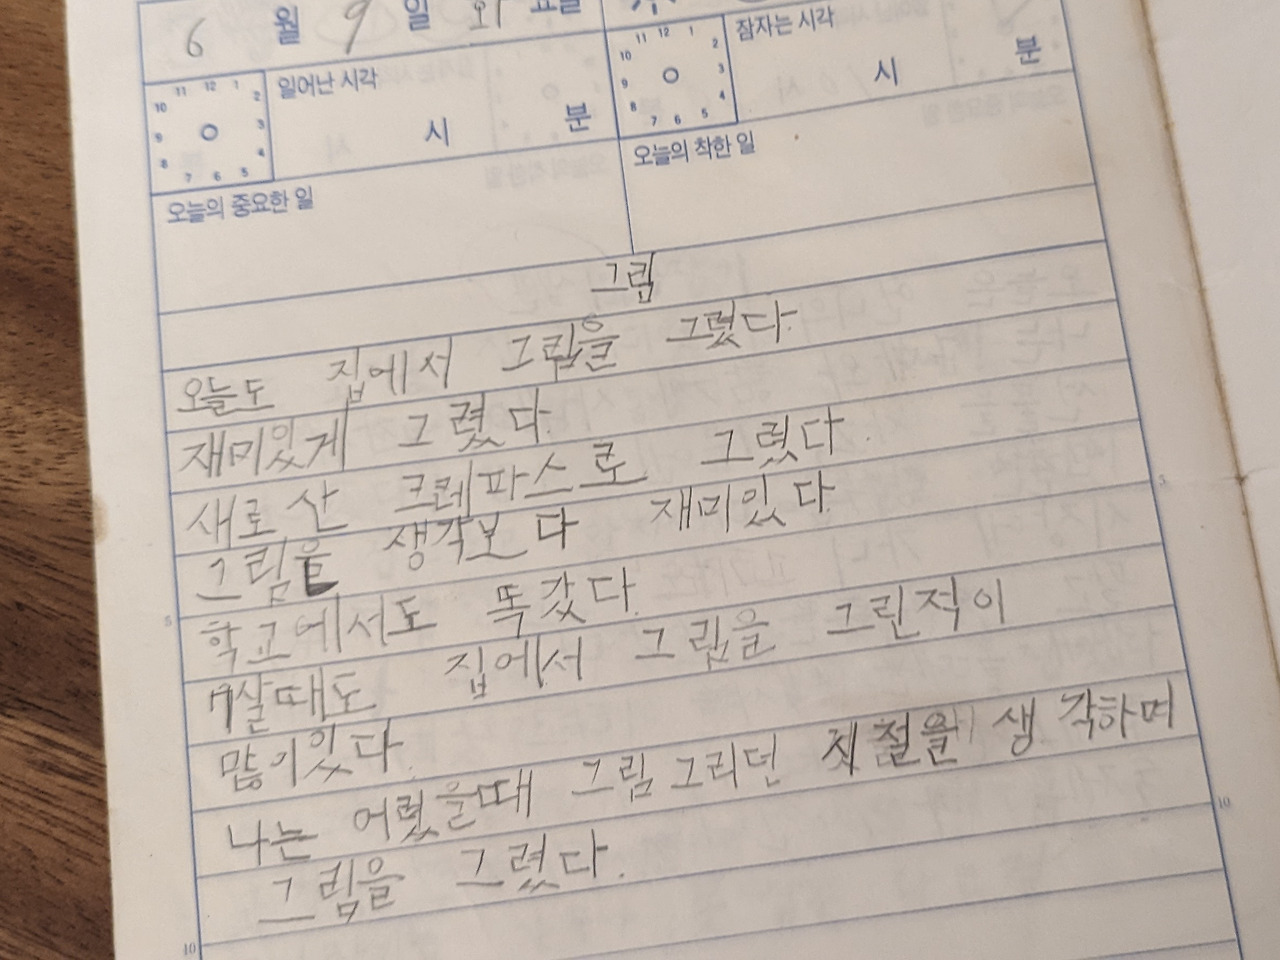 6 월 9 일 화 요일
12 1 2 3 4 5 6 7 8 9 10 11
일어난 시각
시 분
12 1 2 3 4 5 6 7 8 9 10 11
잠자는 시각
시 분
오늘의 중요한 일
오늘의 착한 일
그림
오늘도 집에서 그림을 그렸다.
재미있게 그렸다.
새로산 크레파스로 그렸다.
그림을 생각보다 재미있다.
학교에서도 똑갔다.
7살때도 집에서 그림을 그린적이
많이있다.
나는 어렸을때 그림그리던 시절을 생각하며
그림을 그렸다.
5
5
10
10